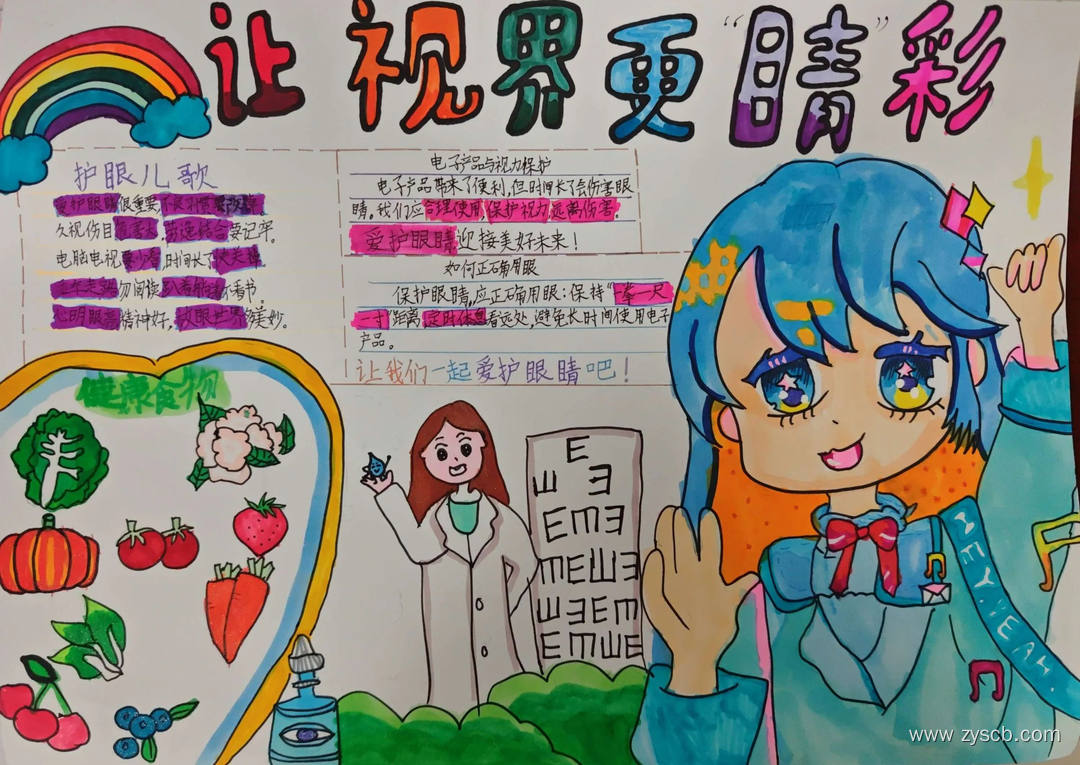 让视界更“睛”彩
护眼儿歌
爱护眼睛很重要,不良习惯要改掉。
久视伤目危害大,劳逸结合要记牢。
电脑电视要少看,时间长了
勿阅读,趴着躺着不看书。
心明眼亮精神好,放眼世界多美妙。
电子产品与视力保护
电子产品带来了便利,但时间长了会伤害眼
睛。我们应合理使用,保护视力,远离伤害。
爱护眼睛迎接美好未来!
如何正确用眼
保护眼睛,应正确用眼:保持“一拳一尺
一寸”距离,定时休息看远处,避免长时间使用电子
产品。
让我们一起爱护眼睛吧!
健康食物
E
Ш Ǝ
E m Ǝ
m E Ш Ǝ
Ш Ǝ E m
E m Ш E
www.zyscb.com